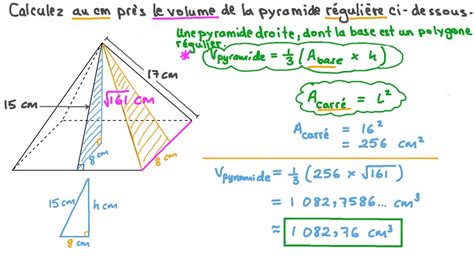 Calculez au cm près le volume de la pyramide régulière ci-dessous.
Une pyramide droite, dont la base est un polygone
régulier.
* Vpyramide = 1/3 (Abase × h)
17 cm
15 cm
√161 cm
8 cm
8 cm
Acarré = L²
Acarré = 16²
= 256 cm²
Vpyramide = 1/3 (256 × √161)
= 1 082,7586... cm³
≈ 1 082,76 cm³
15 cm
h cm
8 cm